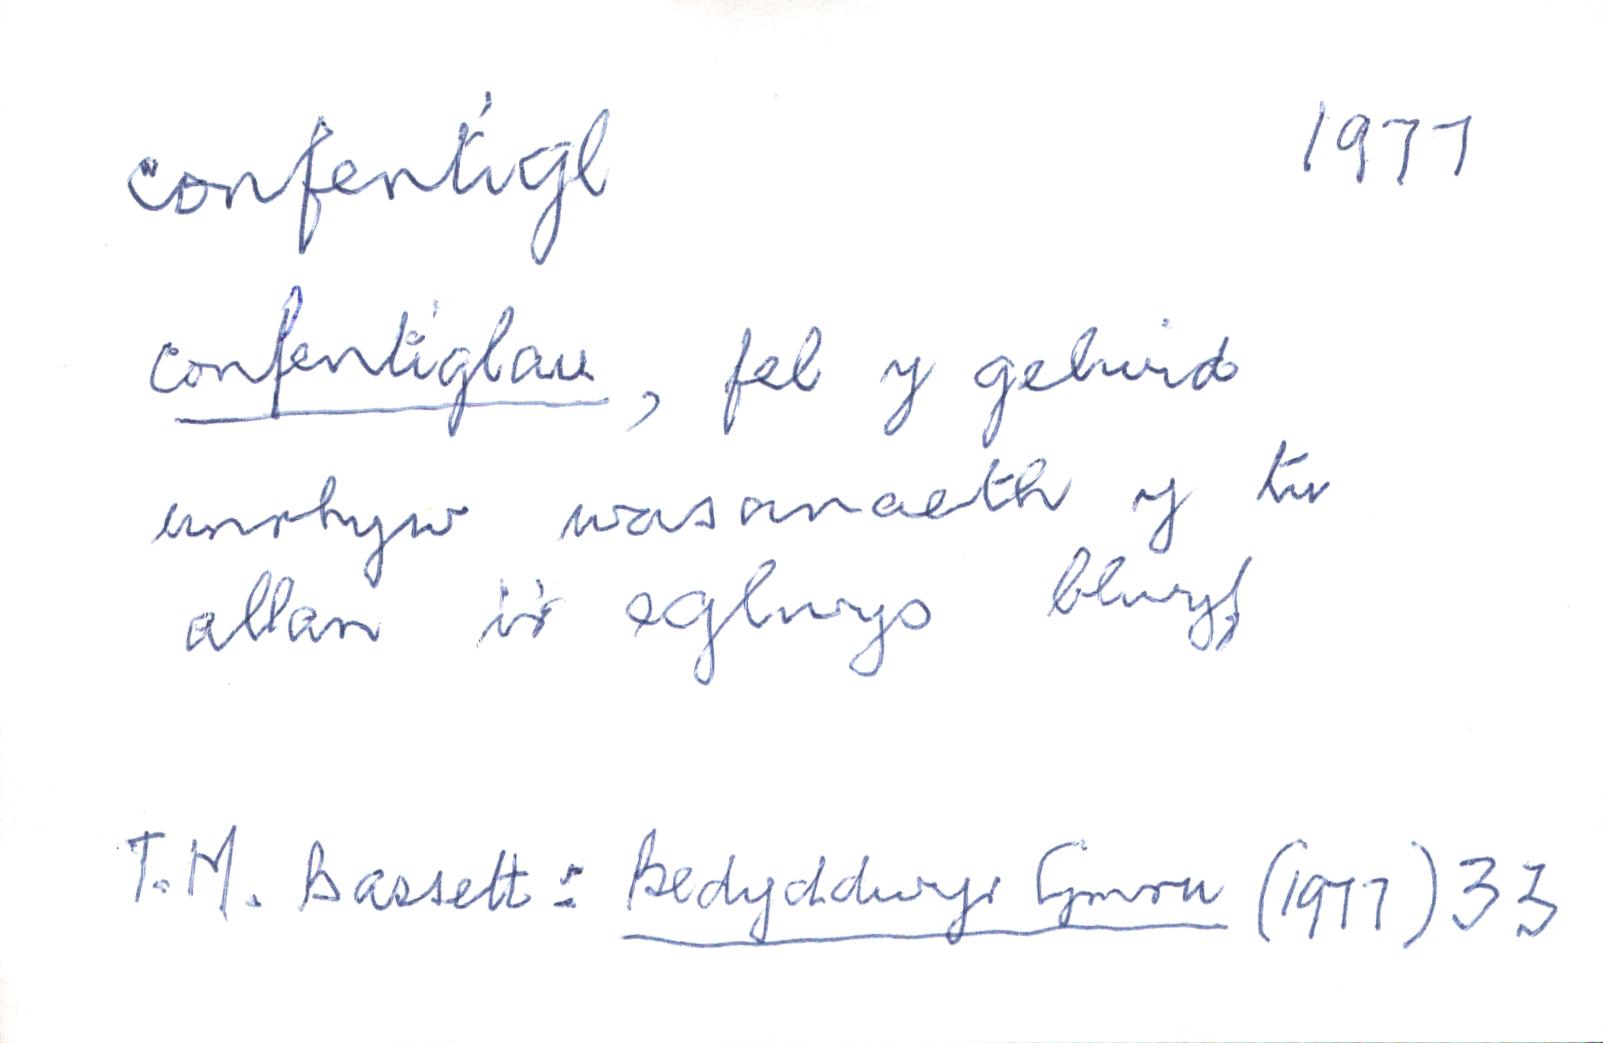 confentigl 1977
confentiglau, fel y gelwid
unrhyw wasanaeth y tu
allan i'r eglwys blwyf
T.M. Bassett: Bedyddwyr Cymru (1977) 33